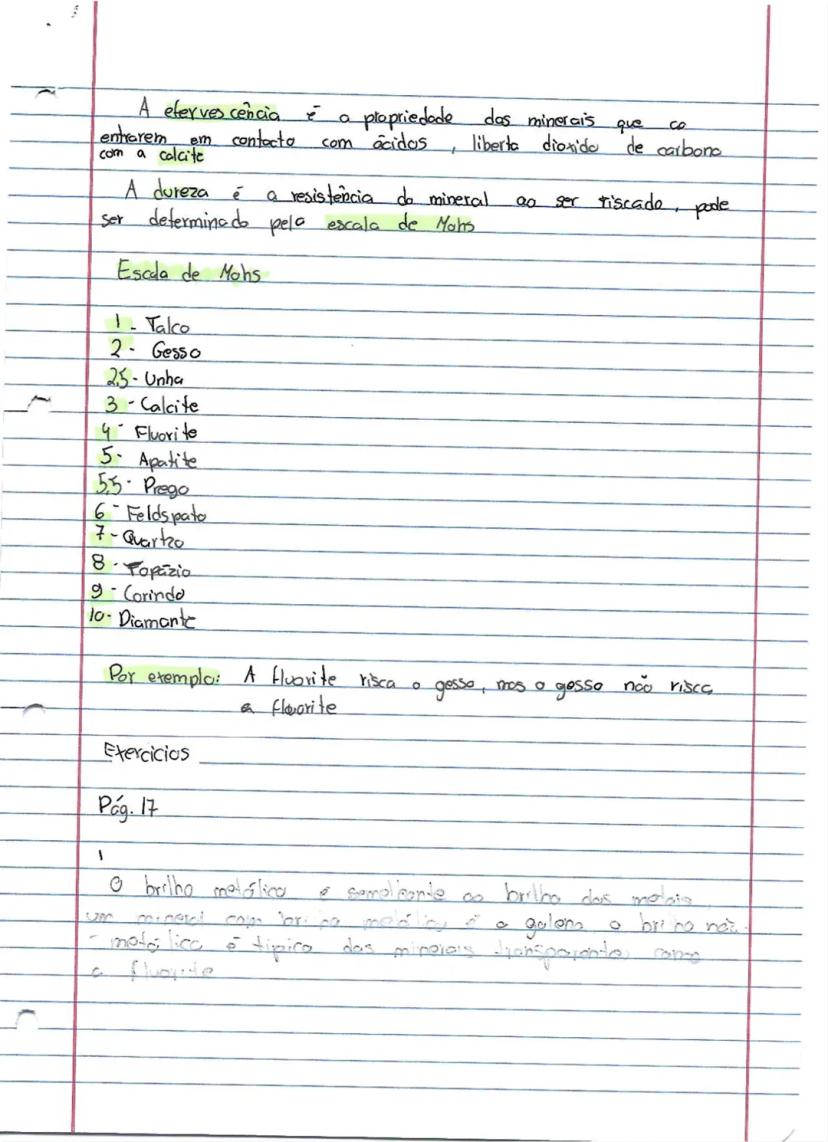 A efervescência é a propriedade dos minerais que ao
entrarem em contacto com ácidos, liberta dioxido de carbono
com a calcite
A dureza é a resistência do mineral ao ser riscado, pode
ser determinado pela escala de Mohs
Escala de Mohs
1 - Talco
2 - Gesso
2,5 - Unha
3 - Calcite
4 - Fluorite
5 - Apatite
5,5 - Prego
6 - Feldspato
7 - Quartzo
8 - Topázio
9 - Corindo
10 - Diamante
Por exemplo: A fluorite risca o gesso, mas o gesso não risca
a fluorite
Exercicios
Pág. 17
1
O brilho metálico é semelhante ao brilho dos metais
um mineral com brilho metálico é a galena o brilho não
- metálico é tipico dos minerais transparentes como
a fluorite